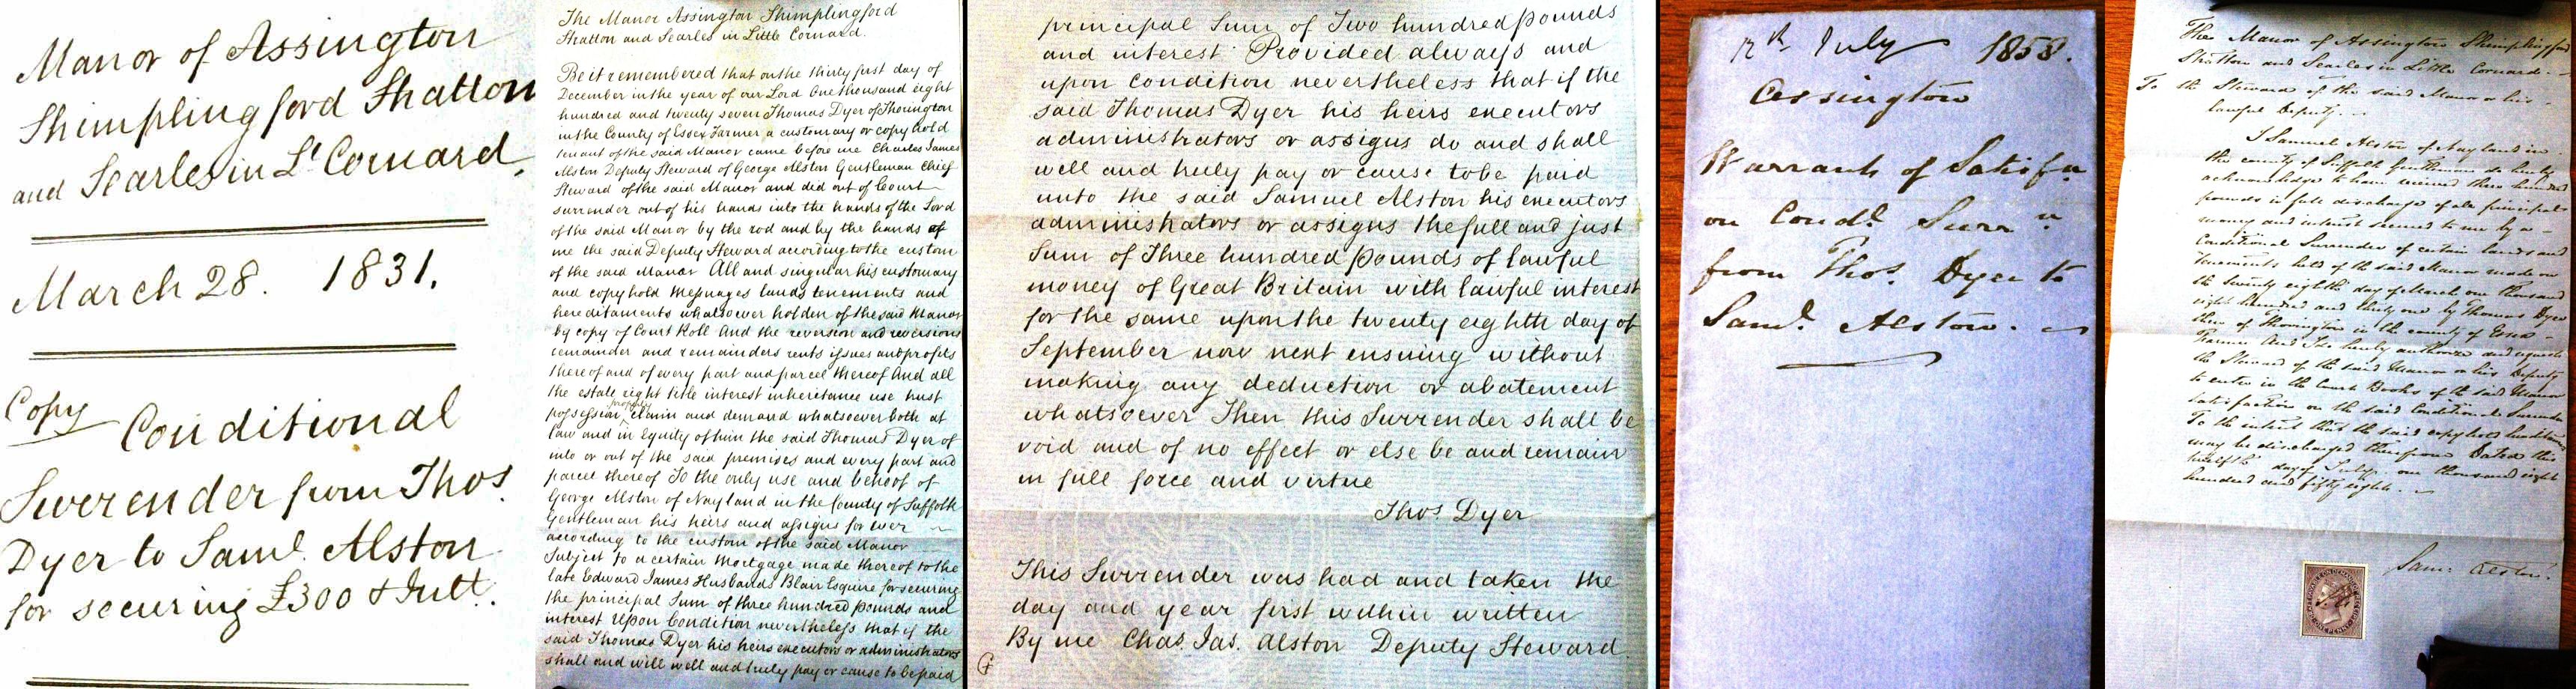 Manor of Assington
Shimplingford Shatton
and Searles in Lt Cornard,
March 28. 1831.
Copy
Conditional
Surrender from Thos.
Dyer to Saml. Alston
for securing £300 & Intt.
The Manor Assington Shimplingford
Shatton and Searles in Little Cornard.
Be it remembered that on the thirty first day of
December in the year of our Lord One thousand eight
hundred and twenty seven Thomas Dyer of Thorington
in the County of Essex Farmer a customary or copyhold
tenant of the said Manor came before me Charles James
Alston Deputy Steward of George Alston Gentleman Chief
Steward of the said Manor and did out of Court
surrender out of his hands into the hands of the Lord
of the said Manor by the rod and by the hands of
me the said Deputy Steward according to the custom
of the said Manor All and singular his customary
and copyhold Messuages lands tenements and
hereditaments whatsoever holden of the said Manor
by copy of Court Roll And the reversion and reversions
remainder and remainders rents issues and profits
thereof and of every part and parcel thereof And all
the estate right title interest inheritance use trust
possession property claim and demand whatsoever both at
law and in Equity of him the said Thomas Dyer of
into or out of the said premises and every part and
parcel thereof To the only use and behoof of
George Alston of Nayland in the County of Suffolk
Gentleman his heirs and assigns for ever
according to the custom of the said Manor
Subject to a certain Mortgage made thereof to the
late Edward James Husbands Blair Esquire for securing
the principal Sum of three hundred pounds and
interest Upon Condition nevertheless that if the
said Thomas Dyer his heirs executors or administrators
shall and will well and truly pay or cause to be paid
principal Sum of Two hundred pounds
and interest Provided always and
upon condition nevertheless that if the
said Thomas Dyer his heirs executors
administrators or assigns do and shall
well and truly pay or cause to be paid
unto the said Samuel Alston his executors
administrators or assigns the full and just
Sum of Three hundred pounds of lawful
money of Great Britain with lawful interest
for the same upon the twenty eighth day of
September now next ensuing without
making any deduction or abatement
whatsoever Then this Surrender shall be
void and of no effect or else be and remain
in full force and virtue
Thos. Dyer
This Surrender was had and taken the
day and year first within written
By me Chas. Jas. Alston Deputy Steward
12th July 1858.
Assington
Warrant of Satisfn
on Condl. Surrr
from Thos. Dyer to
Saml. Alston.
The Manor of Assington Shimplingford
Shatton and Searles in Little Cornard
To the Steward of the said Manor or his
lawful Deputy.
I Samuel Alston of Nayland in
the county of Suffolk Gentleman do hereby
acknowledge to have received three hundred
pounds in full discharge of all principal
money and interest secured to me by a
Conditional Surrender of certain lands and
tenements held of the said Manor made on
the twenty eighth day of March one thousand
eight hundred and thirty one by Thomas Dyer
then of Thorington in the county of Essex
Farmer And I do hereby authorize and request
the Steward of the said Manor or his Deputy
to enter in the Court Books of the said Manor
satisfaction on the said Conditional Surrender
To the intent that the said copyhold hereditaments
may be discharged therefrom Dated this
twelfth day of July one thousand eight
hundred and fifty eight.
Saml. Alston.
ONE PENNY